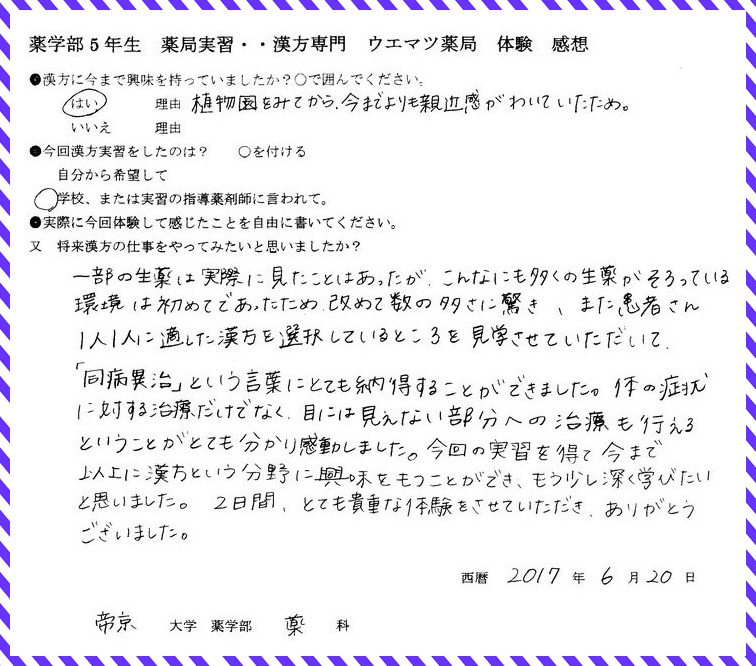 薬学部5年生　薬局実習・・漢方専門　ウエマツ薬局　体験　感想
●漢方に今まで興味を持っていましたか？〇で囲んでください。
はい　理由　植物園をみてから、今までよりも親近感がわいていたため。
いいえ　理由
●今回漢方実習をしたのは？　〇を付ける
自分から希望して
〇学校、または実習の指導薬剤師に言われて。
●実際に今回体験して感じたことを自由に書いてください。
又　将来漢方の仕事をやってみたいと思いましたか？
一部の生薬は実際に見たことはあったが、こんなにも多くの生薬がそろっている
環境は初めてであったため、改めて数の多さに驚き、また患者さん
1人1人に適した漢方を選択しているところを見学させていただいて、
「同病異治」という言葉にとても納得することができました。体の症状
に対する治療だけでなく、目には見えない部分への治療も行える
ということがとても分かり感動しました。今回の実習を得て今まで
以上に漢方という分野に興味をもつことができ、もう少し深く学びたい
と思いました。2日間、とても貴重な体験をさせていただき、ありがとう
ございました。
西暦　2017年　6月20日
帝京　大学　薬学部　薬　科